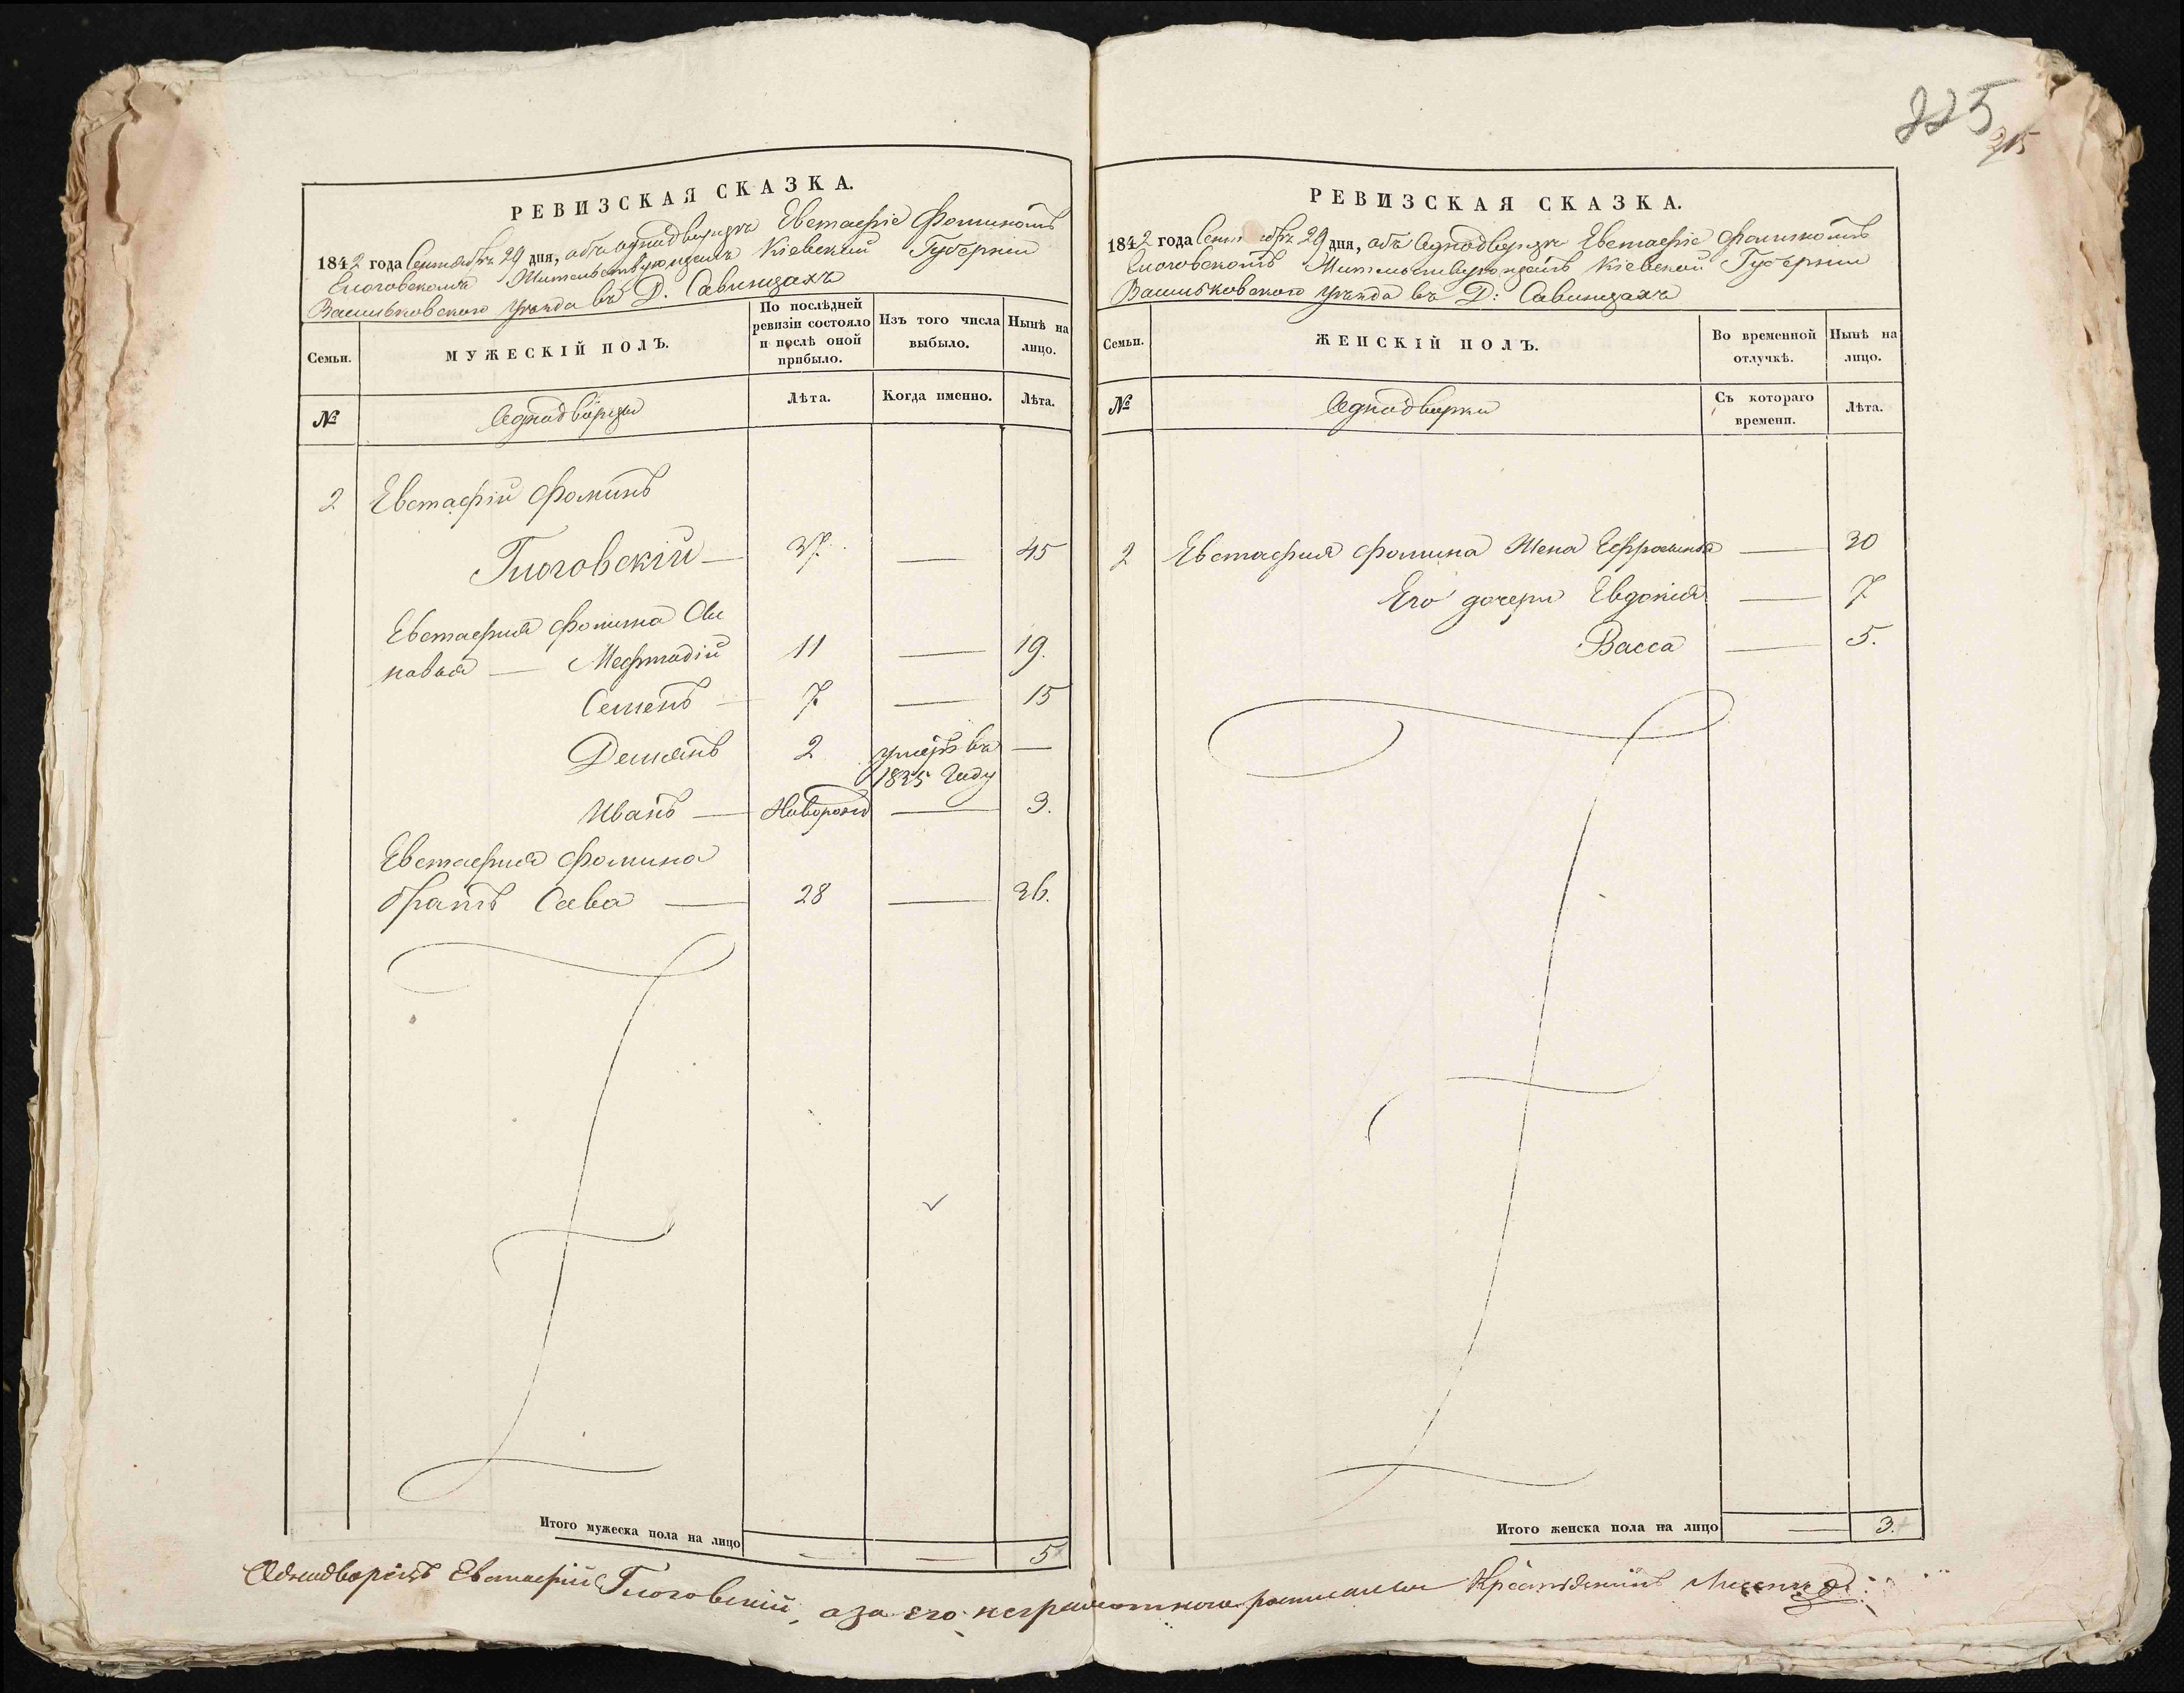 225
215
РЕВИЗСКАЯ СКАЗКА.
1842 года Сентября 29 дня, объ однодворцѣ Евстафіе Ѳоминомъ
Глоговскомъ Жительствующемъ Кіевской Губерніи
Васильковского уѣзда въ Д. Савинцахъ
Семьи.
МУЖЕСКІЙ ПОЛЪ.
По послѣдней
ревизіи состояло
и послѣ оной
прибыло.
Изъ того числа
выбыло.
Нынѣ на
лицо.
№
Однодворцы
Лѣта.
Когда именно.
Лѣта.
2 Евстафій Фоминъ
Глоговскій — 37. — 45
Евстафія Фомина Сы
новья — Мефтодій 11 — 19.
Семенъ — 7. — 15
Демянъ 2 умеръ въ —
1835 Году
Иванъ — Новорожд — 3.
Евстафия Фомина
братъ Сава — 28 — 36.
Итого мужеска пола на лицо — — 5
РЕВИЗСКАЯ СКАЗКА.
1842 года Сент ября 29 дня, объ Однодворцѣ Евстафіе Фоминомъ
Глоговскомъ Жительствующемъ Кіевской Губерніи
Васильковского уѣзда въ Д: Савинцахъ
Семьи.
ЖЕНСКІЙ ПОЛЪ.
Во временной
отлучкѣ.
Нынѣ на
лицо.
№
Однодворки
Съ котораго
времени.
Лѣта.
2 Евстафия Фомина Жена Ефросинья — 30
Его дочери Евдокія — 7
Васса — 5.
Итого женска пола на лицо — 3.
Однодворецъ Евстафій Глоговскій, а за его неграмотного росписался